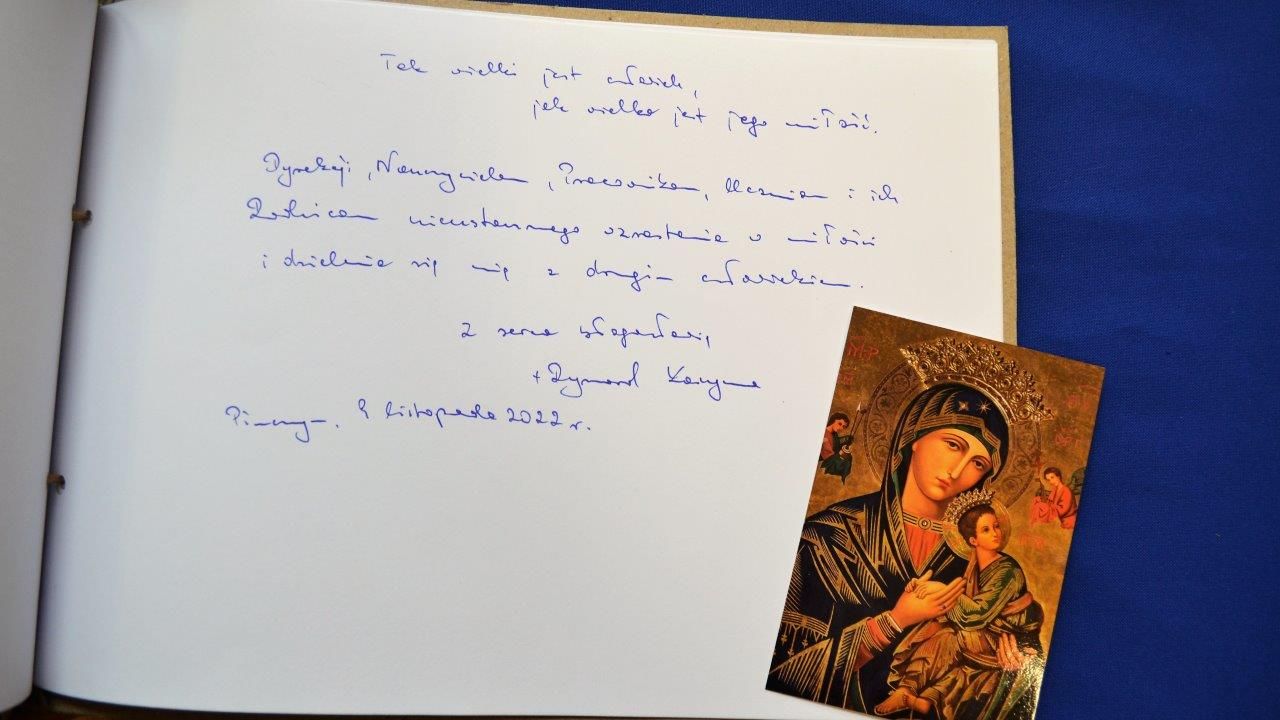 Tak wielki jest człowiek,
jak wielka jest jego miłość.
Dyrekcji, Nauczycielom, Pracownikom, Uczniom i ich
Rodzicom nieustannego wzrastania w miłości
i dzielenia się nią z drugim człowiekiem.
Z serca błogosławię
+ Ryszard
listopada 2022 r.